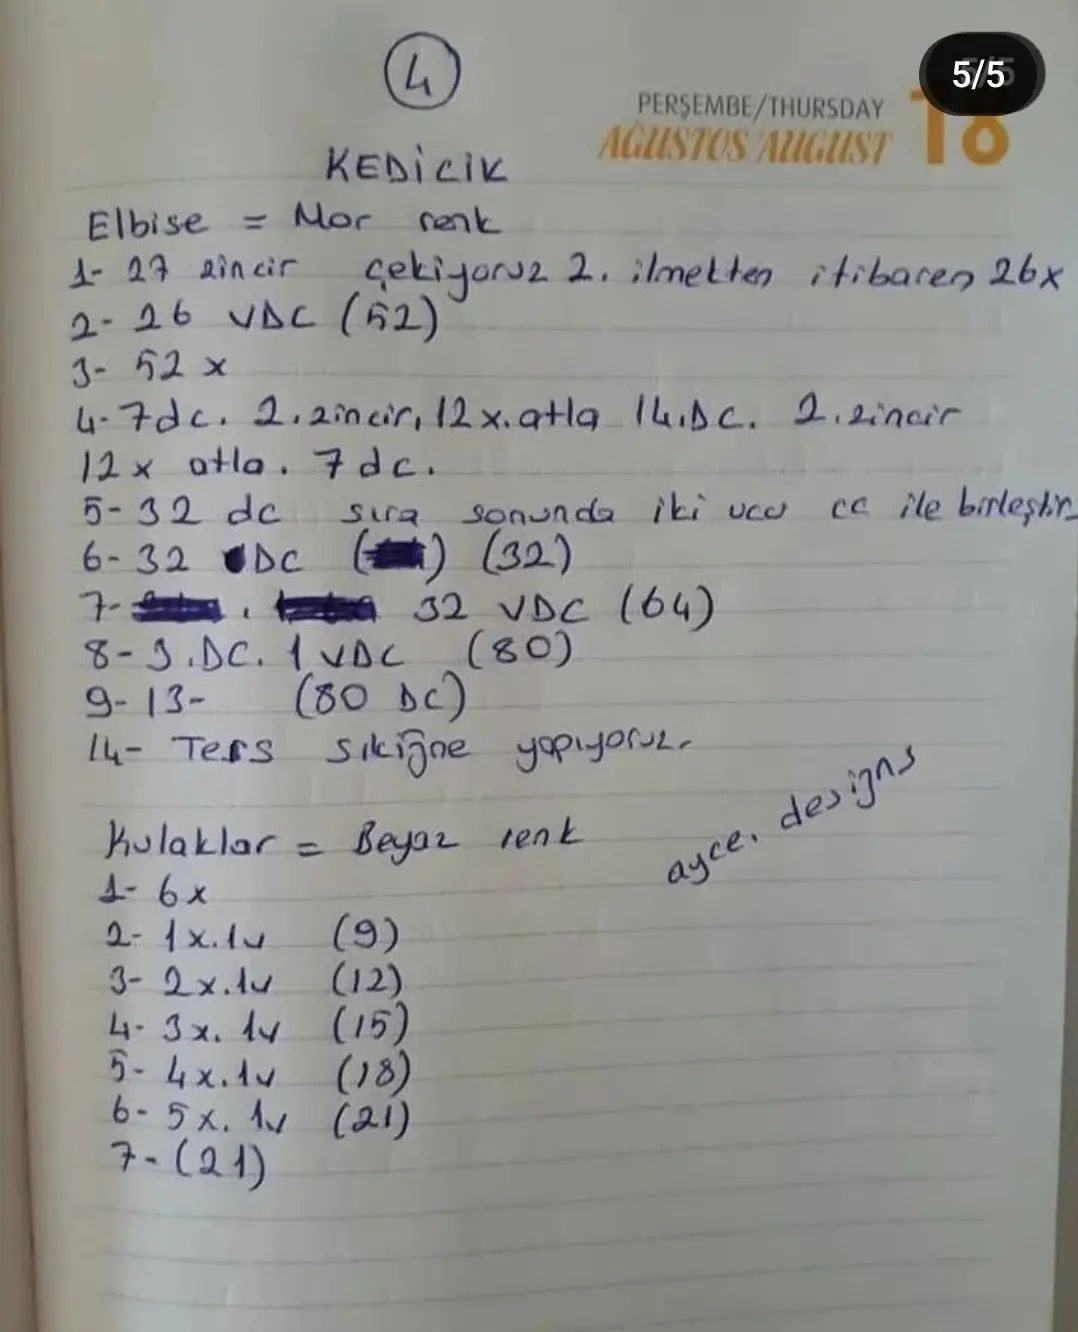 4
5/5
PERŞEMBE/THURSDAY
AĞUSTOS/AUGUST 18
KEDİCİK
Elbise = Mor renk
1- 27 zincir çekiyoruz 2. ilmekten itibaren 26x
2- 26 VDC (52)
3- 52 x
4- 7dc. 2.zincir, 12x.atla 14.DC. 2.zincir
12x atla. 7dc.
5- 32 dc sıra sonunda iki ucu cc ile birleştir
6- 32 DC ( ) (32)
7- . 32 VDC (64)
8- 3.DC. 1 VDC (80)
9- 13- (80 DC)
14- Ters sıkiğne yapıyoruz.
ayce.designs
Kulaklar = Beyaz renk
1- 6x
2- 1x.1v (9)
3- 2x.1v (12)
4- 3x.1v (15)
5- 4x.1v (18)
6- 5x.1v (21)
7- (21)